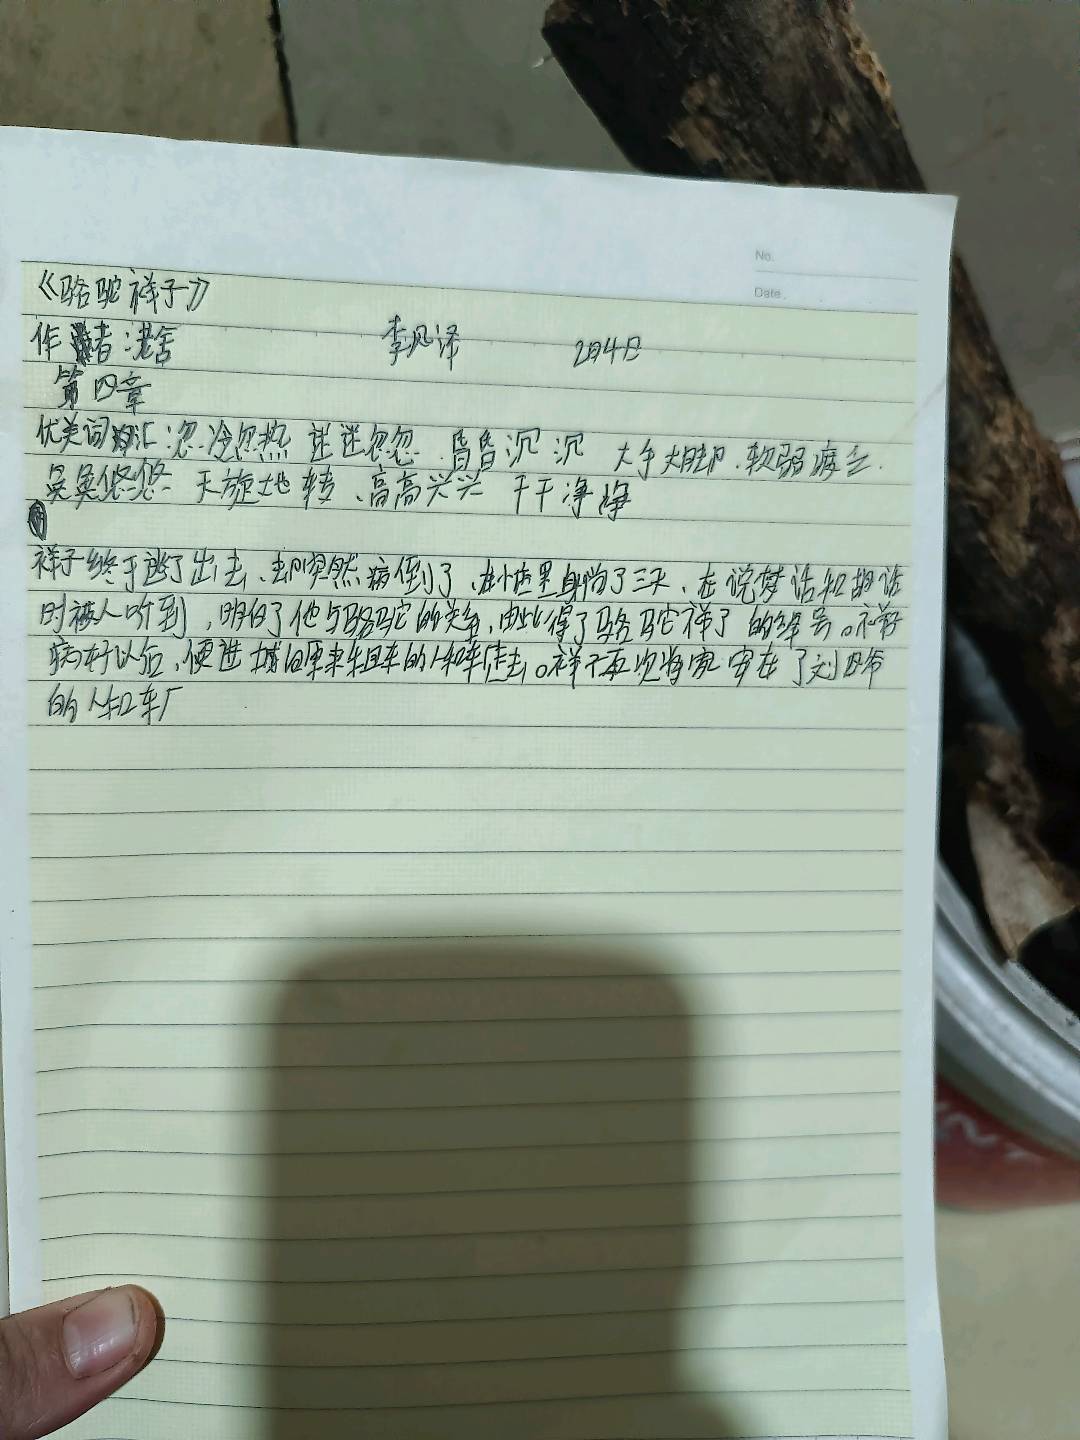 No.
Date.
《骆驼祥子》
作者:老舍 李风泽 2月4日
第四章
优美词汇:忽冷忽热 迷迷忽忽、昏昏沉沉 大手大脚、软弱疲乏、
晃晃悠悠 天旋地转、高高兴兴 干干净净
祥子终于逃了出去、却突然病倒了、在小店里躺了三天、在说梦话和胡话
时被人听到,明白了他与骆驼的关系,由此得了骆驼祥子的绰号。祥子
病好以后,便进城回原来租车的人和车厂去。祥子再次将家安在了刘四爷
的人和车厂